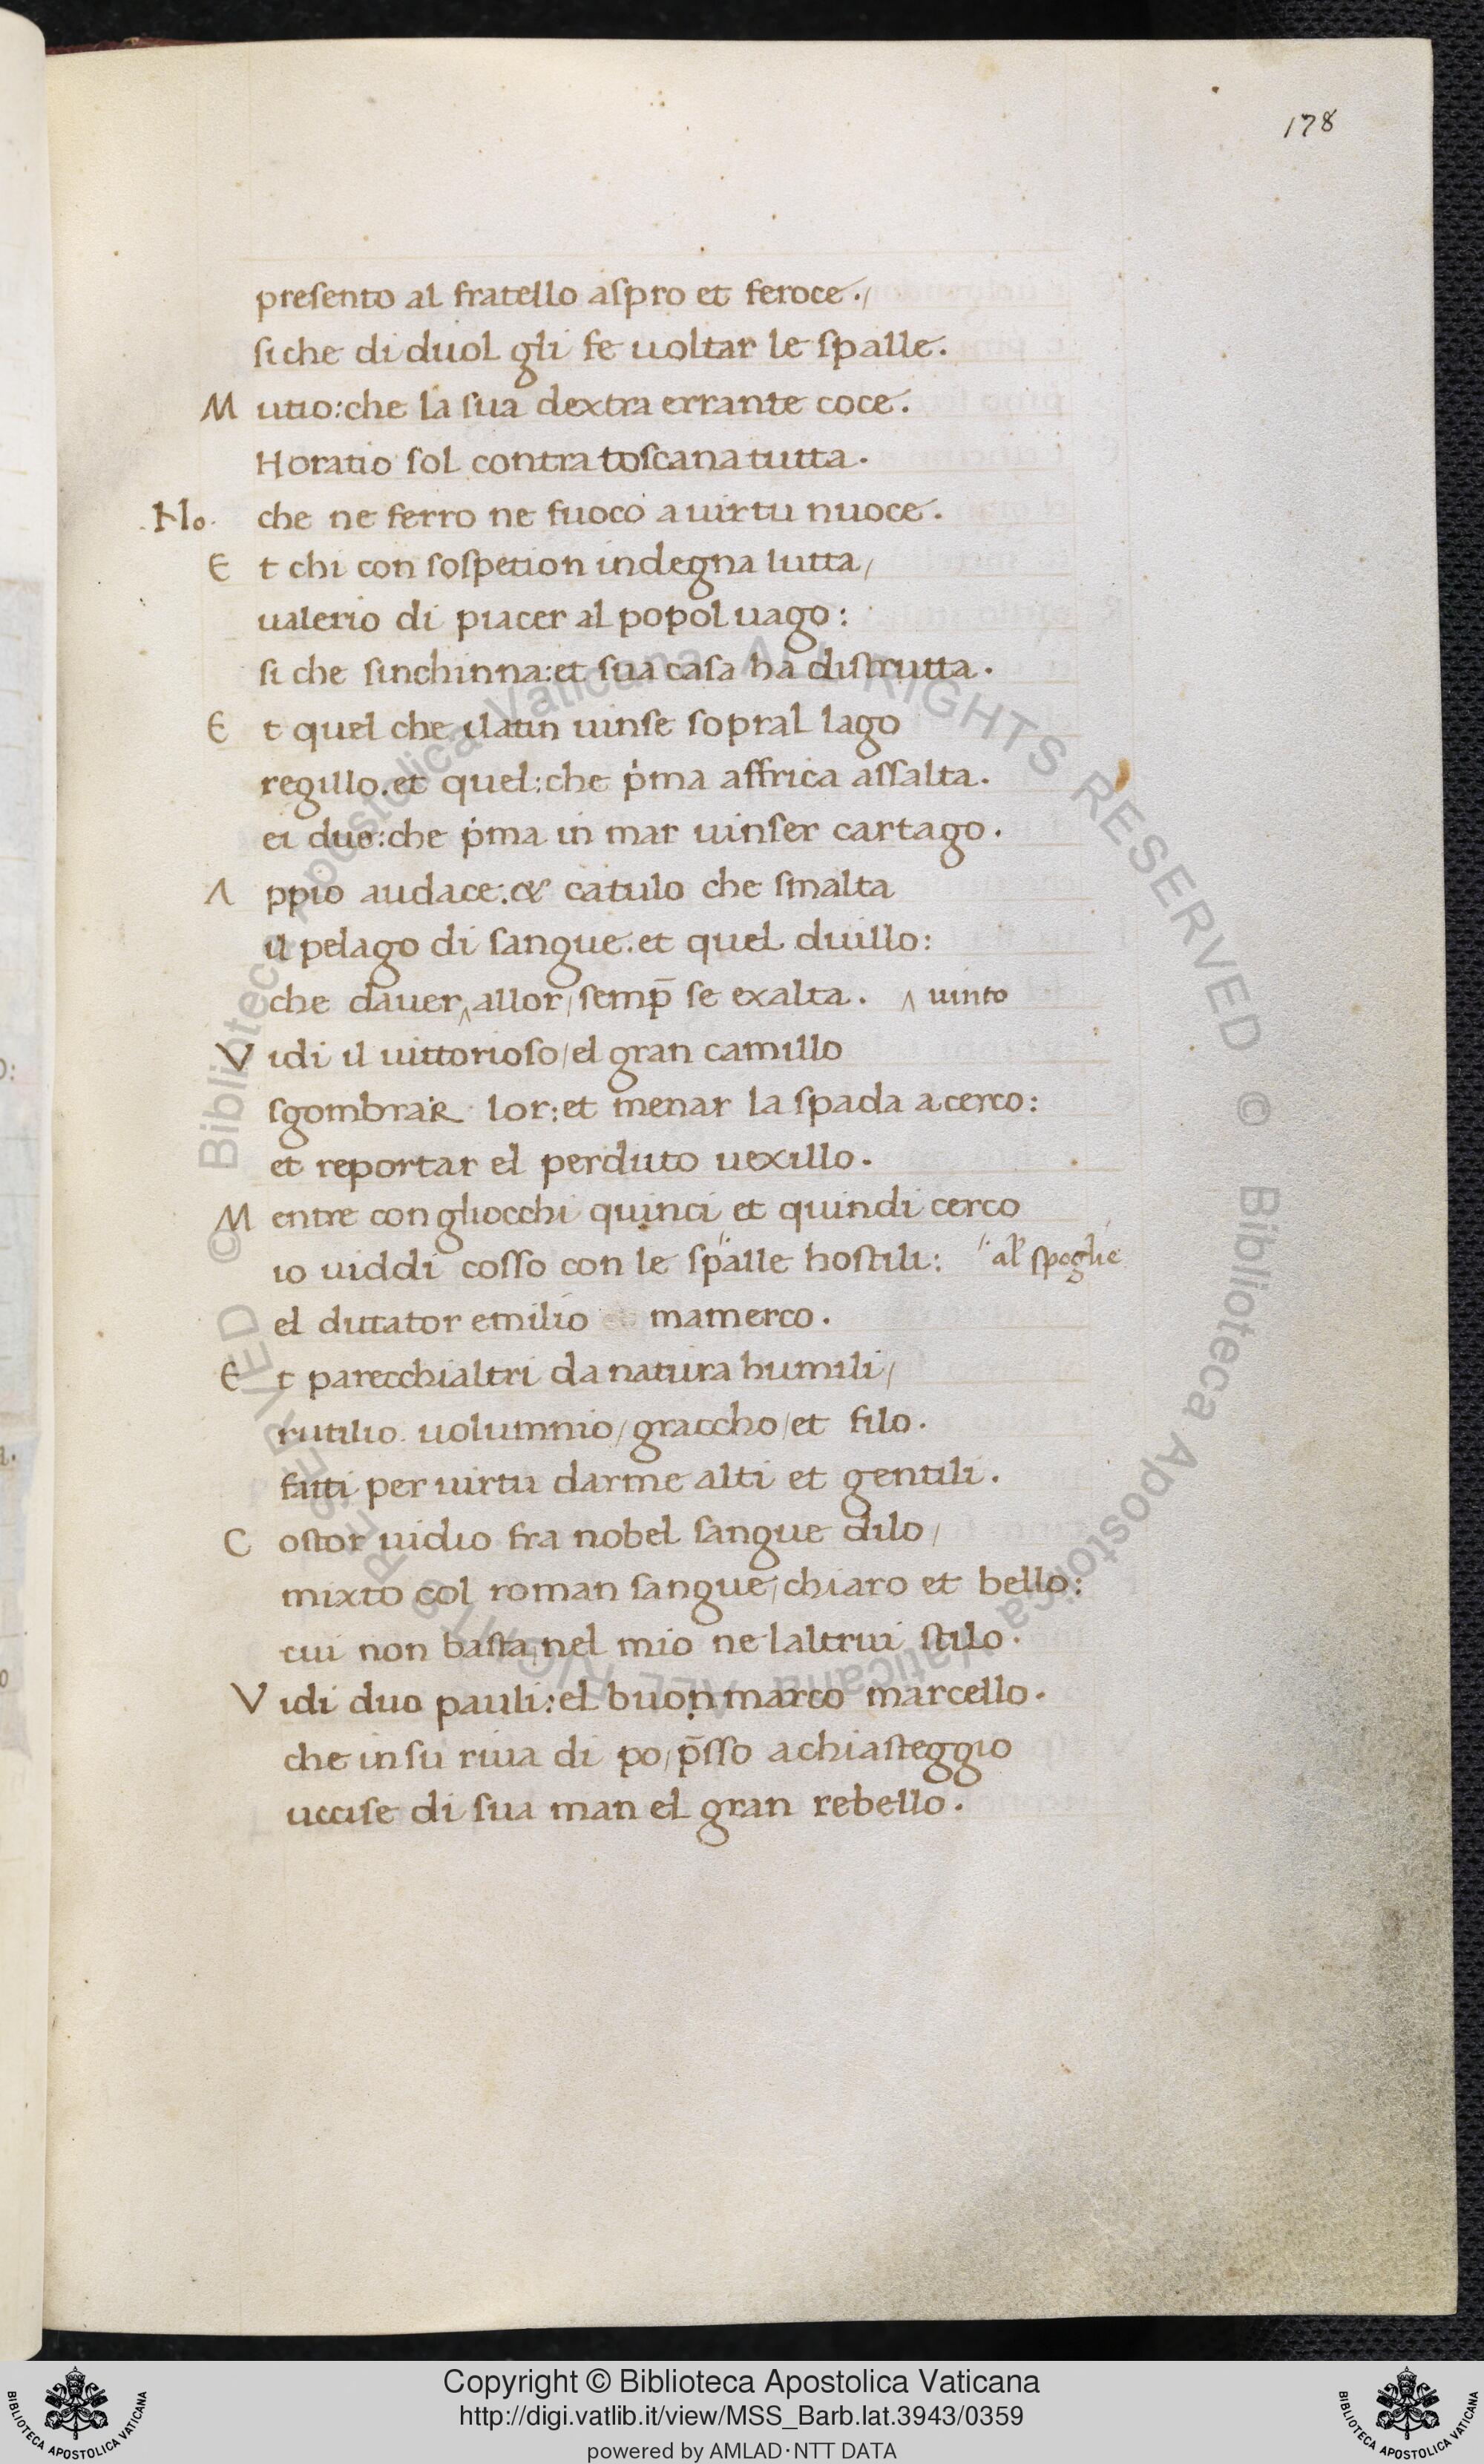 178
presento al fratello aspro et feroce./
si che di duol gli fe uoltar le spalle.
M utio: che la sua dextra errante coce.
Horatio sol contra toscana tutta.
.Ho. che ne ferro ne fuoco a uirtu nuoce.
E t chi con sospetion indegna lutta/
ualerio di piacer al popol uago:
si che sinchinna: et sua casa ha distrutta.
E t quel che ilatin uinse sopral lago
regillo. et quel: che p̍ma affrica assalta.
ei duo: che p̍ma in mar uinser cartago.
A ppio audace: & catulo che smalta
il pelago di sangue: et quel duillo:
che dauer ^ allor/ semp̄ se exalta. ^ uinto
V idi il uittorioso/ el gran camillo
sgombrar lor: et menar la spada a cerco:
et reportar el perduto uexillo.
M entre con gliocchi quinci et quindi cerco
io uiddi cosso con le spalle hostili: al' spoglie
el dittator emilio mamerco.
E t parecchialtri da natura humili/
rutilio. uolumnio/ graccho/ et filo.
fatti per uirtu darme alti et gentili.
C ostor uidio fra nobel sangue dilo/
mixto col roman sangue/ chiaro et bello:
cui non basta/ nel mio ne laltrui stilo.
V idi duo pauli: el buon marco marcello.
che in su riua di po/ p̄sso a chiasteggio
uccise di sua man el gran rebello.
© Biblioteca Apostolica Vaticana ALL RIGHTS RESERVED © Biblioteca Apostolica Vaticana ALL RIGHTS RESERVED
Copyright © Biblioteca Apostolica Vaticana
http://digi.vatlib.it/view/MSS_Barb.lat.3943/0359
powered by AMLAD·NTT DATA
BIBLIOTECA APOSTOLICA VATICANA
BIBLIOTECA APOSTOLICA VATICANA